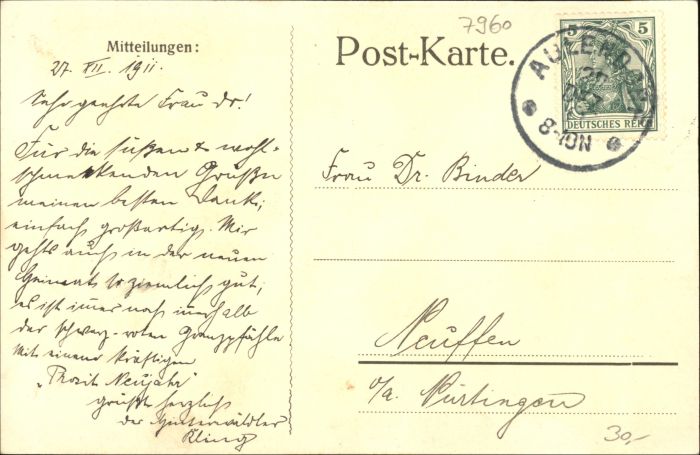 7960
Mitteilungen:
Post-Karte.
5
DEUTSCHES REICH
AULENDORF
8-9 N
27. XII. 1911.
Sehr geehrte Frau Dr!
Für die süßen & wohl-
schmeckenden Grüße
meinen besten Dank;
einfach großartig. Mir
gehts auch in der neuen
Heimat so ziemlich gut,
es ist immer noch innerhalb
der schwarz-roten Grenzpfähle
Mit einem kräftigen
"Prosit Neujahr"
grüßt herzlich
der Hinterwäldler
Kling
Frau Dr. Binder
Neuffen
o/a. Nürtingen
30,-